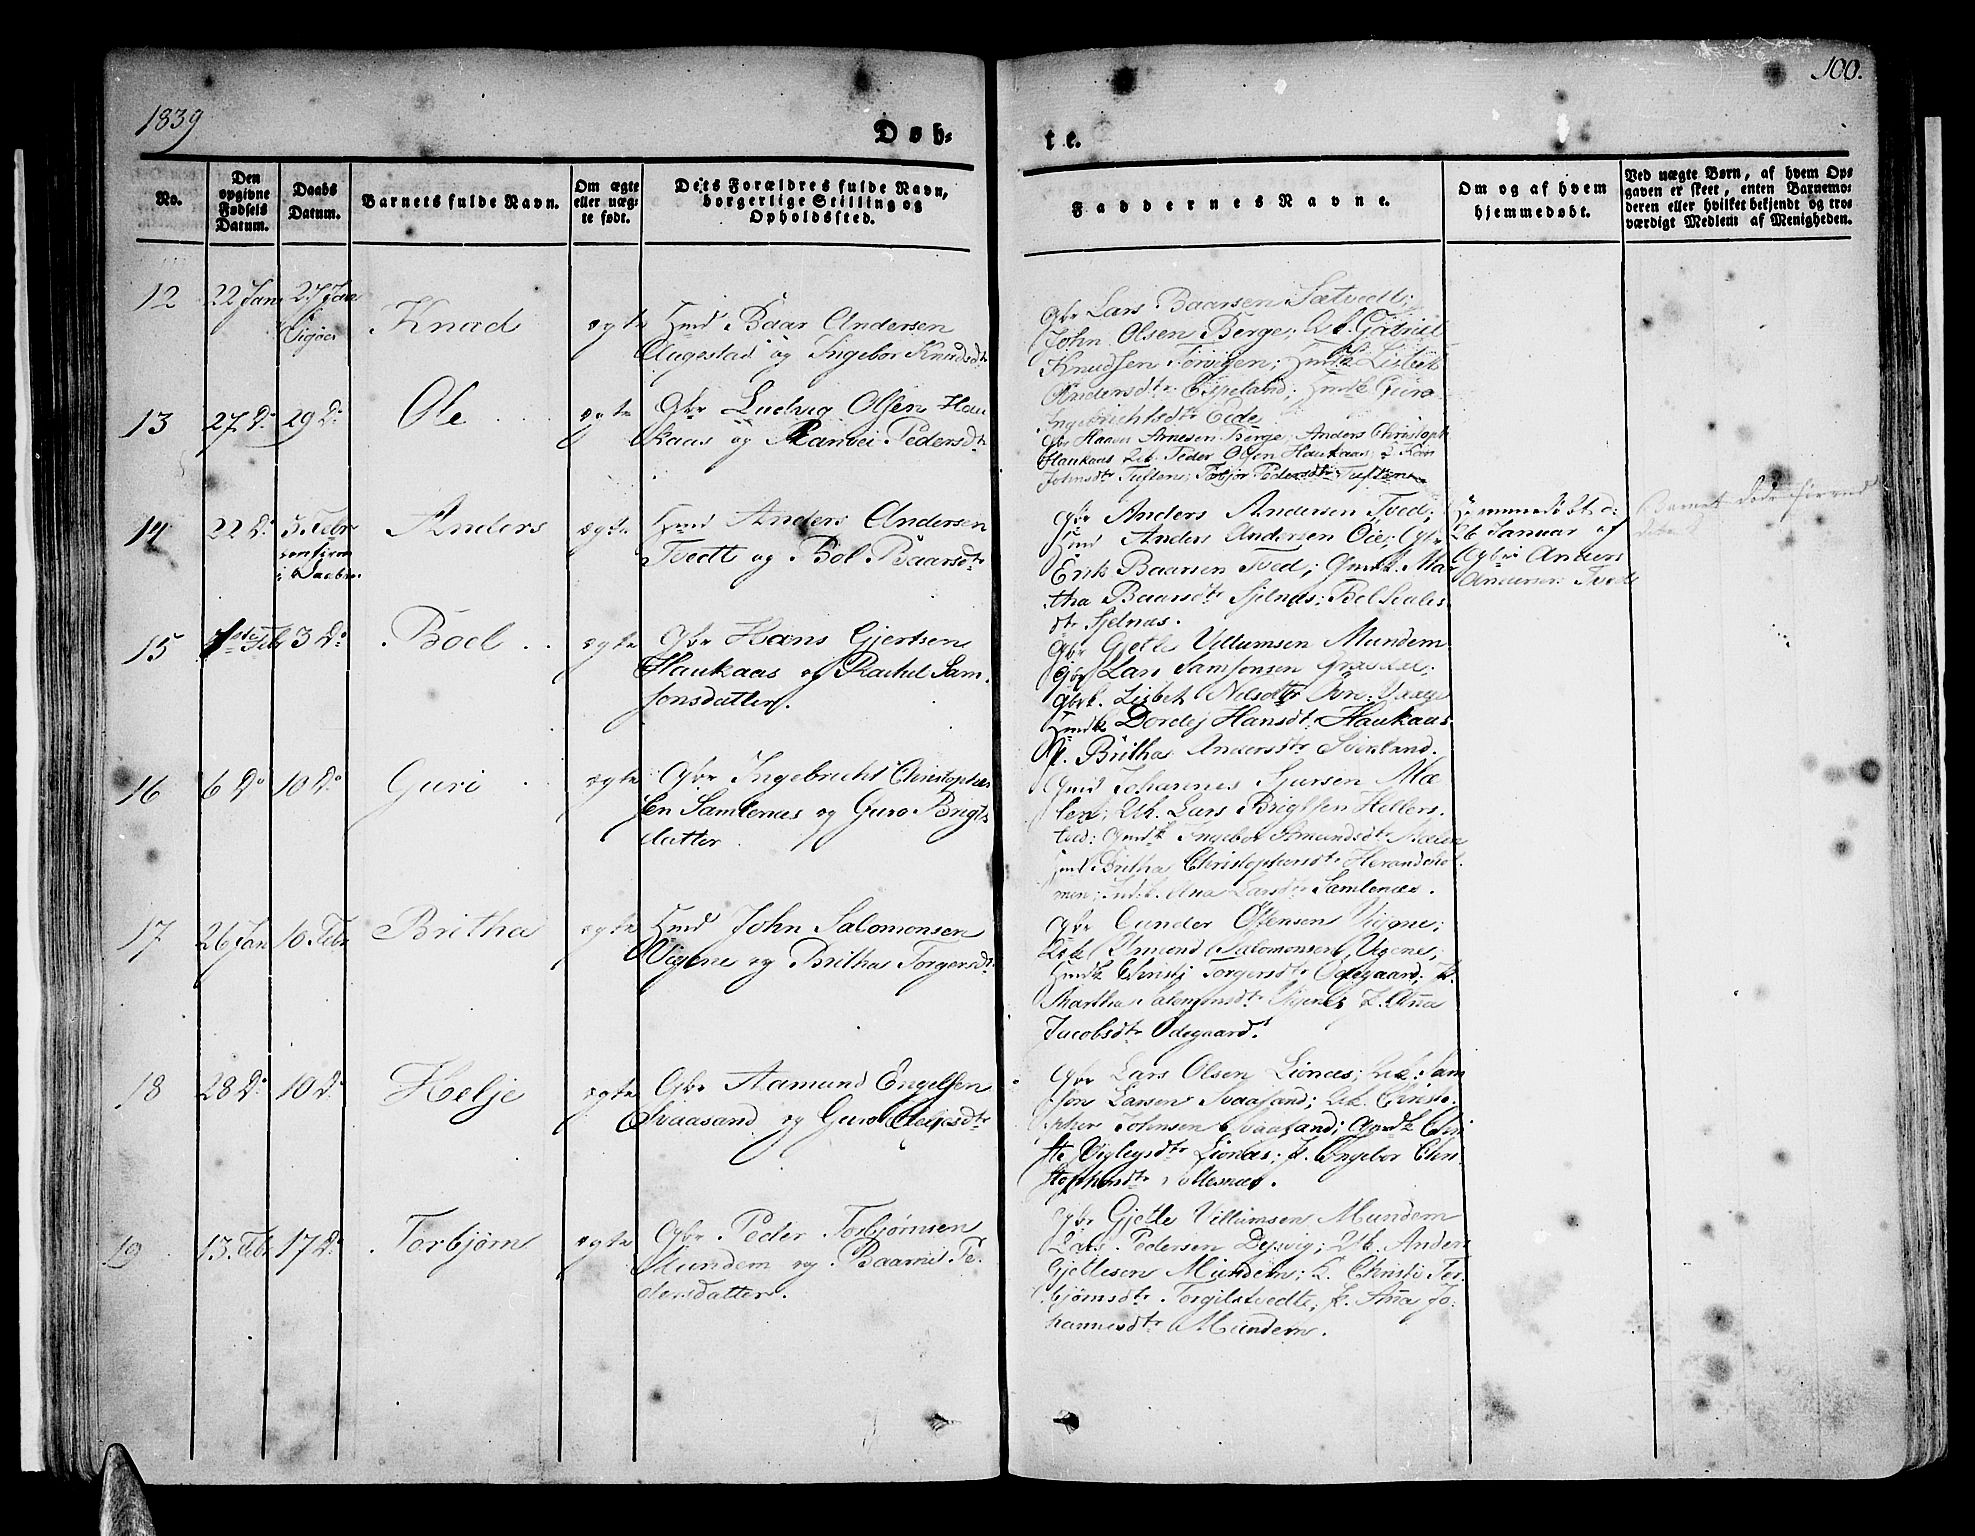 1839
100.
Døb-
te.
No.
Den opgivne Fødsels Datum.
Daabs Datum.
Barnets fulde Navn.
Om ægte eller uægte født.
Dets Forældres fulde Navn, borgerlige Stilling og Opholdssted.
Faddernes Navne.
Om og af hvem hjemmedøbt.
Ved uægte Børn, af hvem Opgaven er skeet, enten Barnemoderen eller hvilket bekjendt og troværdigt Medlem af Menigheden.
12
22 Jan
27 Jan
Vigøer
Knud
ægte
Hmd Baar Andersen
Augestad og Ingebor Knudsdtr
Gbr Lars Baarsen Sætvedt;
John Olsen Berge; Uk. Gabriel
Knudsen Torvigen; Hmdk Lisbet
Andersdtr Espeland; Hmdk Guro
Ingebrichtsdtr Eide
13
27 Do
29 Do
Ole
ægte
Gbr Ludvig Olsen Hau
kaas og Ranvei Pedersdtr
Gbr Haaen Arnesen Berge; Anders Christoph
Haukaas Uk. Peder Olsen Haukaas; Kari
Johnsdtr Tuften; Torbjør Pedersdtr Tuften
14
22 Do
5 Febr
Anders
ægte
Hmd Anders Andersen
Tvedt og Bol Baarsdtr
Gbr Anders Andersen Tved;
Hmd Anders Andersen Öie; Gbr
Erik Baarsen Tved; Gmdk. Mar
tha Baarsdtr Sjelnæs; Bol
dtr Sjelnæs.
Hjemmedöbt d:
26 Januar af
Gbr Anders
Andersen Tvedt
Barnet döde
15
1ste Feb
3 Do
Böel
ægte
Gbr Hans Gjertsen
Haukaas og Rachel Sam
sonsdatter.
Gbr Gjetle Villumsen Mundem
Gbr Lars Samsonsen
Gbrk. Lisbet Nilsdtr
Hmdk Dordej Hansdt Haukaas
P. Britha Andersdtr Svinland.
16
6 Do
10 Do
Guri
ægte
Gbr Ingebrecht Christophers
sen Samlenæs og Guro Brigts
datter
Gmd Johannes Sjursen Mæ
len; Uk. Lars Brigtsen Hellers
tved; Gmdk Ingebor Amundsdtr Mælen
Hmd Britha Christophersdtr Herandshol
men; Ana Larsdtr Samlenæs.
17
26 Jan
10 Febr
Britha
ægte
Hmd John Salomonsen
Vigene og Britha Torgersdtr
Gbr Gunder Östensen Vigne;
Uk Amund Salomonsen Vigene;
Hmdk Christj Torgersdtr Odegaard; P.
Martha Salomonsdtr Vigene; P. Ana
Jacobsdtr Odegaard.
18
28 Do
10 Do
Helje
ægte
Gbr Aamund Engelsen
Svaasand og Guro
Gbr Lars Olsen Lionæs; Uk. Sam
son Larsen Svaasand; Uk. Christo
pher Johnsen Svaasand; Gmdk Chri
ste Viglegsdtr Lionæs; P. Engebor Chri
stophersdtr
19
13. Feb
17 Do
Torbjørn
ægte
Gbr Peder Torbjørnsen
Mundem og Baarnil Pe
dersdatter.
Gbr Gjetle Villumsen Mundem
Lars Pedersen Dysvig; Uk. Anders
Gjetlesen Mundem; P. Christi Tor
bjørnsdtr Torgilstvedte, P. Ana Jo
hannesdtr Mundem.